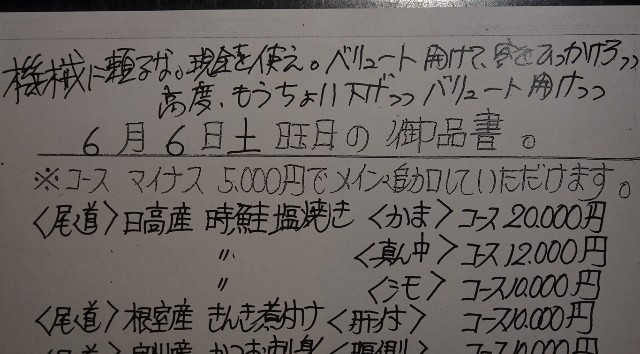 機械に頼るな。現金を使え。ベリュート開けて、客をあっかけろっっ
高度、もうちょい下げっっ ベリュート開けっっ
6月6日土曜日の御品書。
※コース マイナス 5.000円でメイン追加していただけます。
〈尾道〉日高産 時鮭塩焼き〈かま〉コース20.000円
〃 〈真ん中〉コース12.000円
〃 〈シモ〉コース10.000円
〈尾道〉根室産 きんき煮付け〈肝付〉コース10.000円
〈尾道〉 かつお刺身〈腹側〉コース10.000円